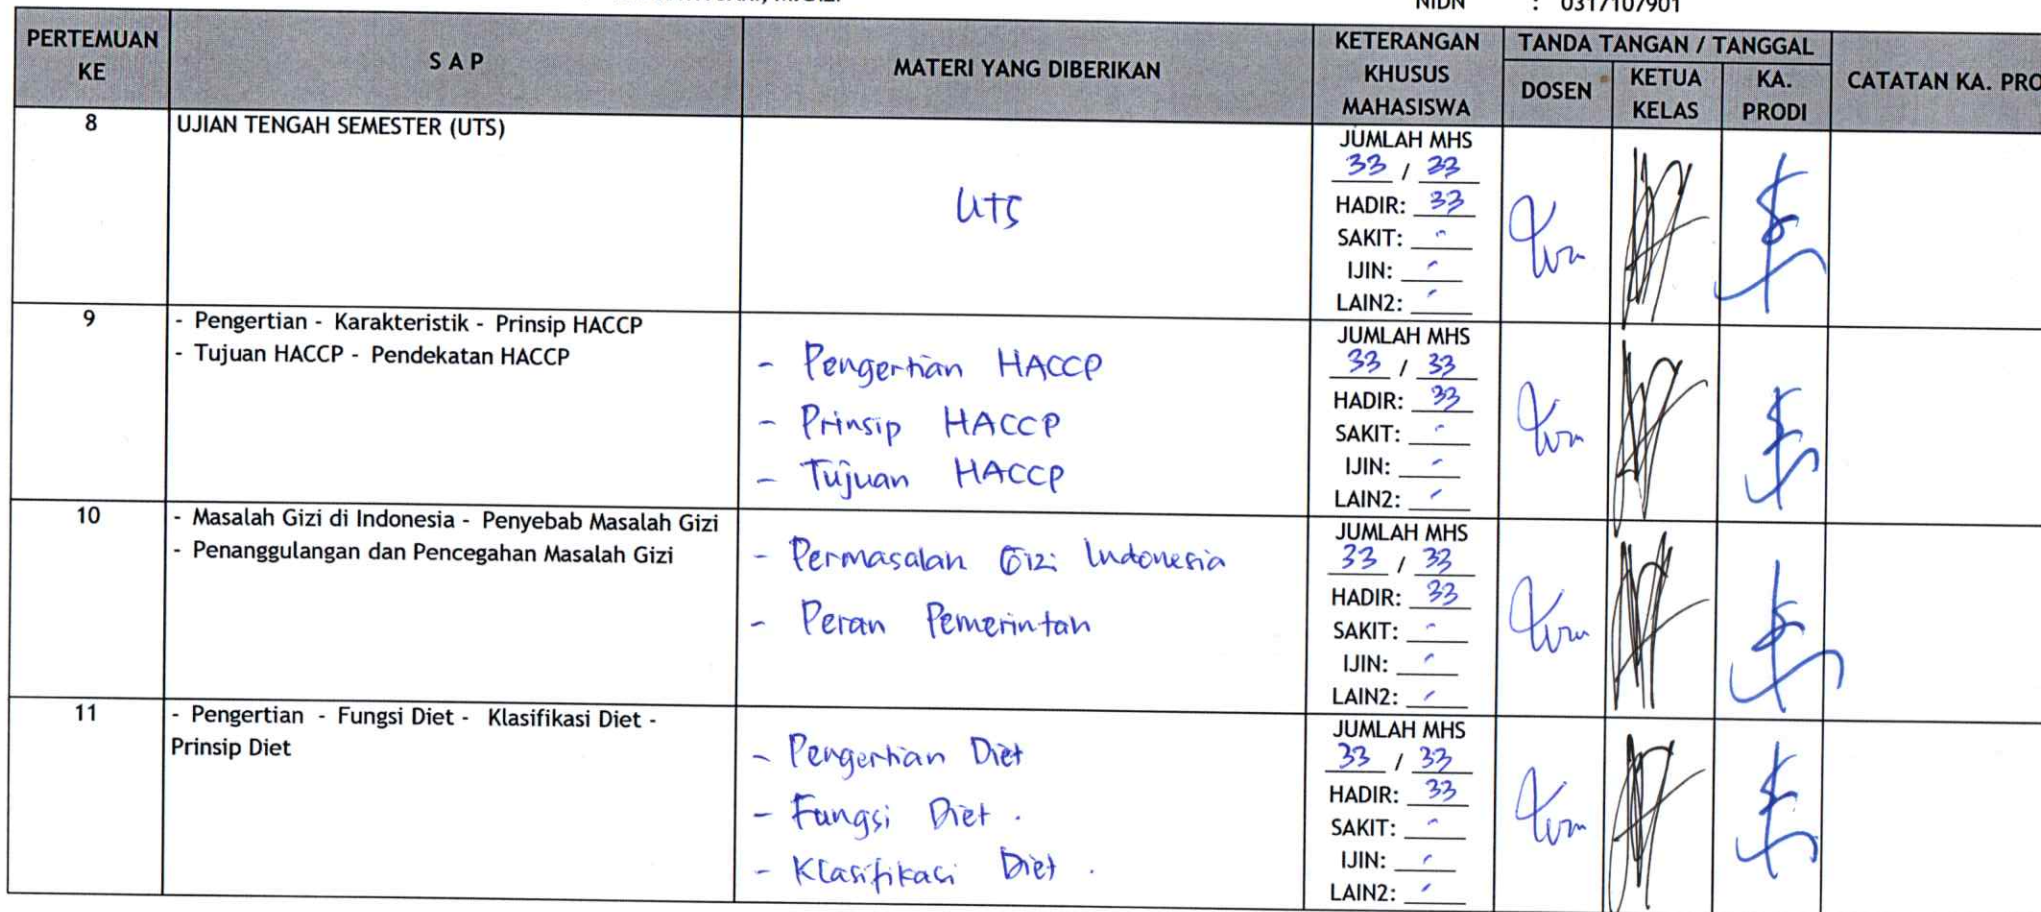 NIDN : 0317107901
PERTEMUAN KE
S A P
MATERI YANG DIBERIKAN
KETERANGAN KHUSUS MAHASISWA
TANDA TANGAN / TANGGAL
DOSEN
KETUA KELAS
KA. PRODI
CATATAN KA. PRO
8
UJIAN TENGAH SEMESTER (UTS)
UTS
JUMLAH MHS
33 / 33
HADIR: 33
SAKIT: -
IJIN: -
LAIN2: -
9
- Pengertian - Karakteristik - Prinsip HACCP
- Tujuan HACCP - Pendekatan HACCP
- Pengertian HACCP
- Prinsip HACCP
- Tujuan HACCP
JUMLAH MHS
33 / 33
HADIR: 33
SAKIT: -
IJIN: -
LAIN2: -
10
- Masalah Gizi di Indonesia - Penyebab Masalah Gizi
- Penanggulangan dan Pencegahan Masalah Gizi
- Permasalan Gizi Indonesia
- Peran Pemerintah
JUMLAH MHS
33 / 33
HADIR: 33
SAKIT: -
IJIN: -
LAIN2: -
11
- Pengertian - Fungsi Diet - Klasifikasi Diet -
Prinsip Diet
- Pengertian Diet
- Fungsi Diet .
- Klasifikasi Diet .
JUMLAH MHS
33 / 33
HADIR: 33
SAKIT: -
IJIN: -
LAIN2: -